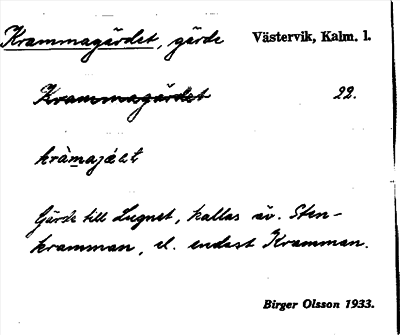 Krammagärdet, gärde Västervik, Kalm. l.
Krammagärdet 22.
Gärde till Lugnet, kallas äv. Sten-
kramman, el. endast Kramman.
Birger Olsson 1933.